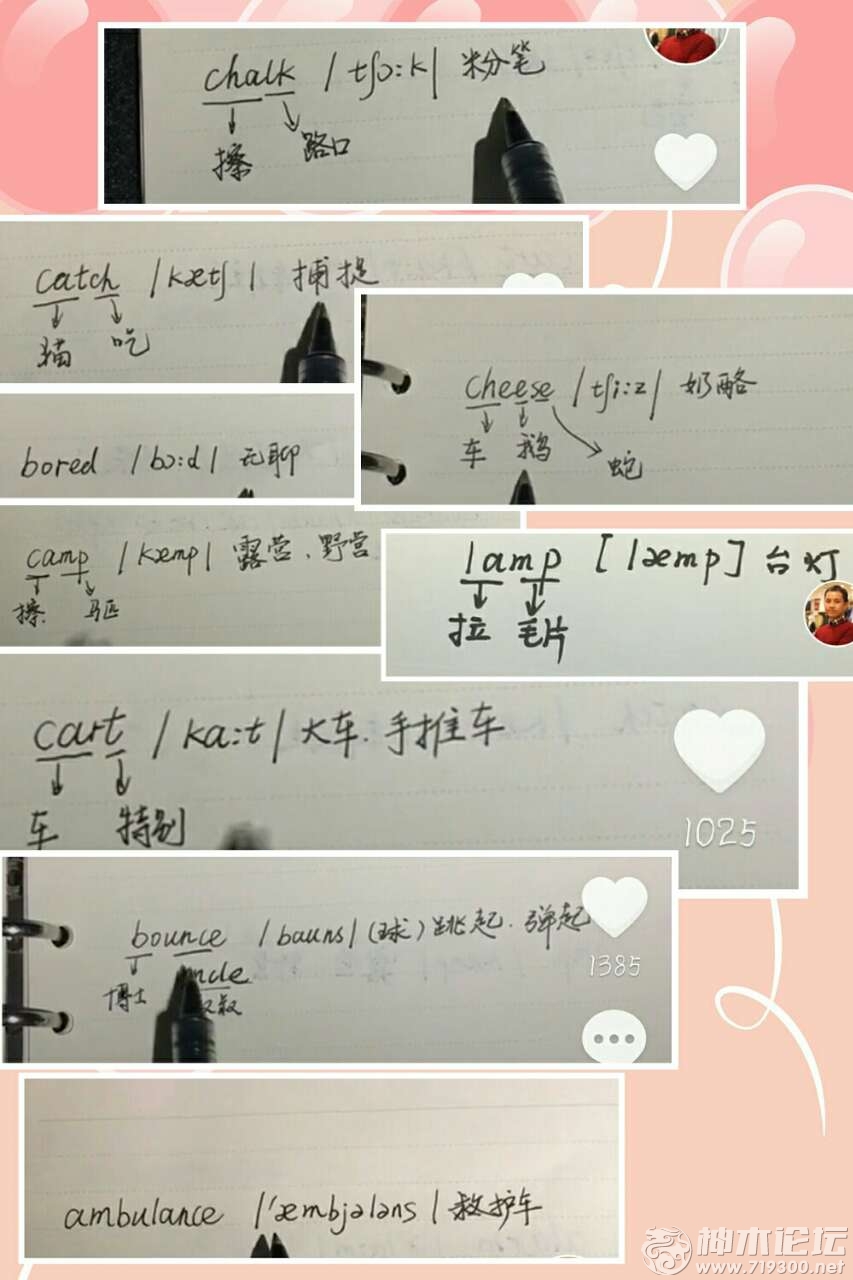 chalk /tʃɔ:k/ 粉笔
擦 路口
catch /kætʃ/ 捕捉
猫 吃
cheese /tʃi:z/ 奶酪
车 鹅 蛇
bored /bɔ:d/ 无聊
camp /kæmp/ 露营、野营
擦 驱
lamp [læmp] 台灯
拉 毛片
cart /ka:t/ 大车.手推车
车 特别
1025
bounce /bauns/ (球)跳起.弹起
博士
1385
ambulance /'æmbjələns/ 救护车
神木论坛
www.719300.net